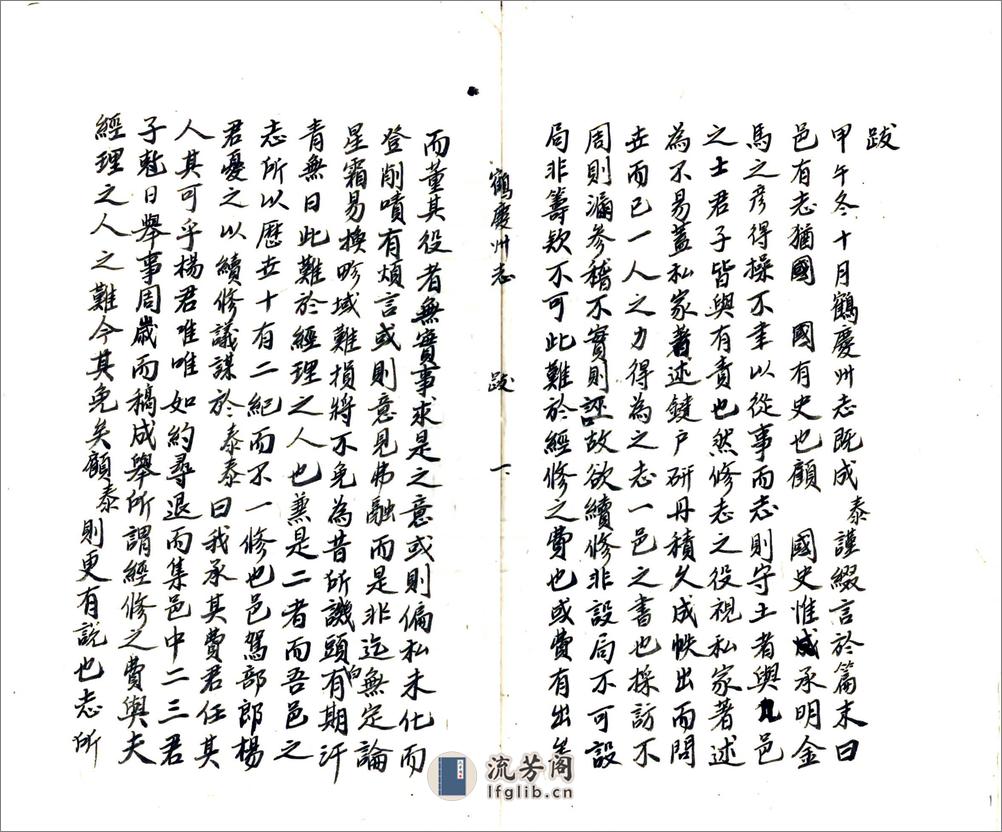 跋
甲午冬十月鶴慶州志既成泰謹綴言於篇末曰
邑有志猶國 國有史也顧 國史惟承明金
馬之彦得操不聿以從事而志則守土者與凡邑
之士君子皆與有責也然修志之役視私家著述
為不易蓋私家著述鍵户研丹積久成帙出而問
世而已一人之力得為之志一邑之書也採訪不
周則漏參稽不實則誣故欲續修非設局不可設
局非籌欵不可此難於經修之費也或費有出矣
鶴慶州志 跋 一
而董其役者無實事求是之意或則偏私未化而
登削嘖有煩言或則意見弗融而是非迄無定論
星霜易換畛域難損將不免為昔所譏頭白有期汗
青無日此難於經理之人也兼是二者而吾邑之
志所以歷世十有二紀而不一修也邑駕部郎楊
君憂之以續修議謀於泰泰曰我承其費君任其
人其可乎楊君唯唯如約尋退而集邑中二三君
子尅日舉事周嵗而稿成舉所謂經修之費與夫
經理之人之難今其免矣顧泰則更有説也志所
流芳阁
lfglib.cn